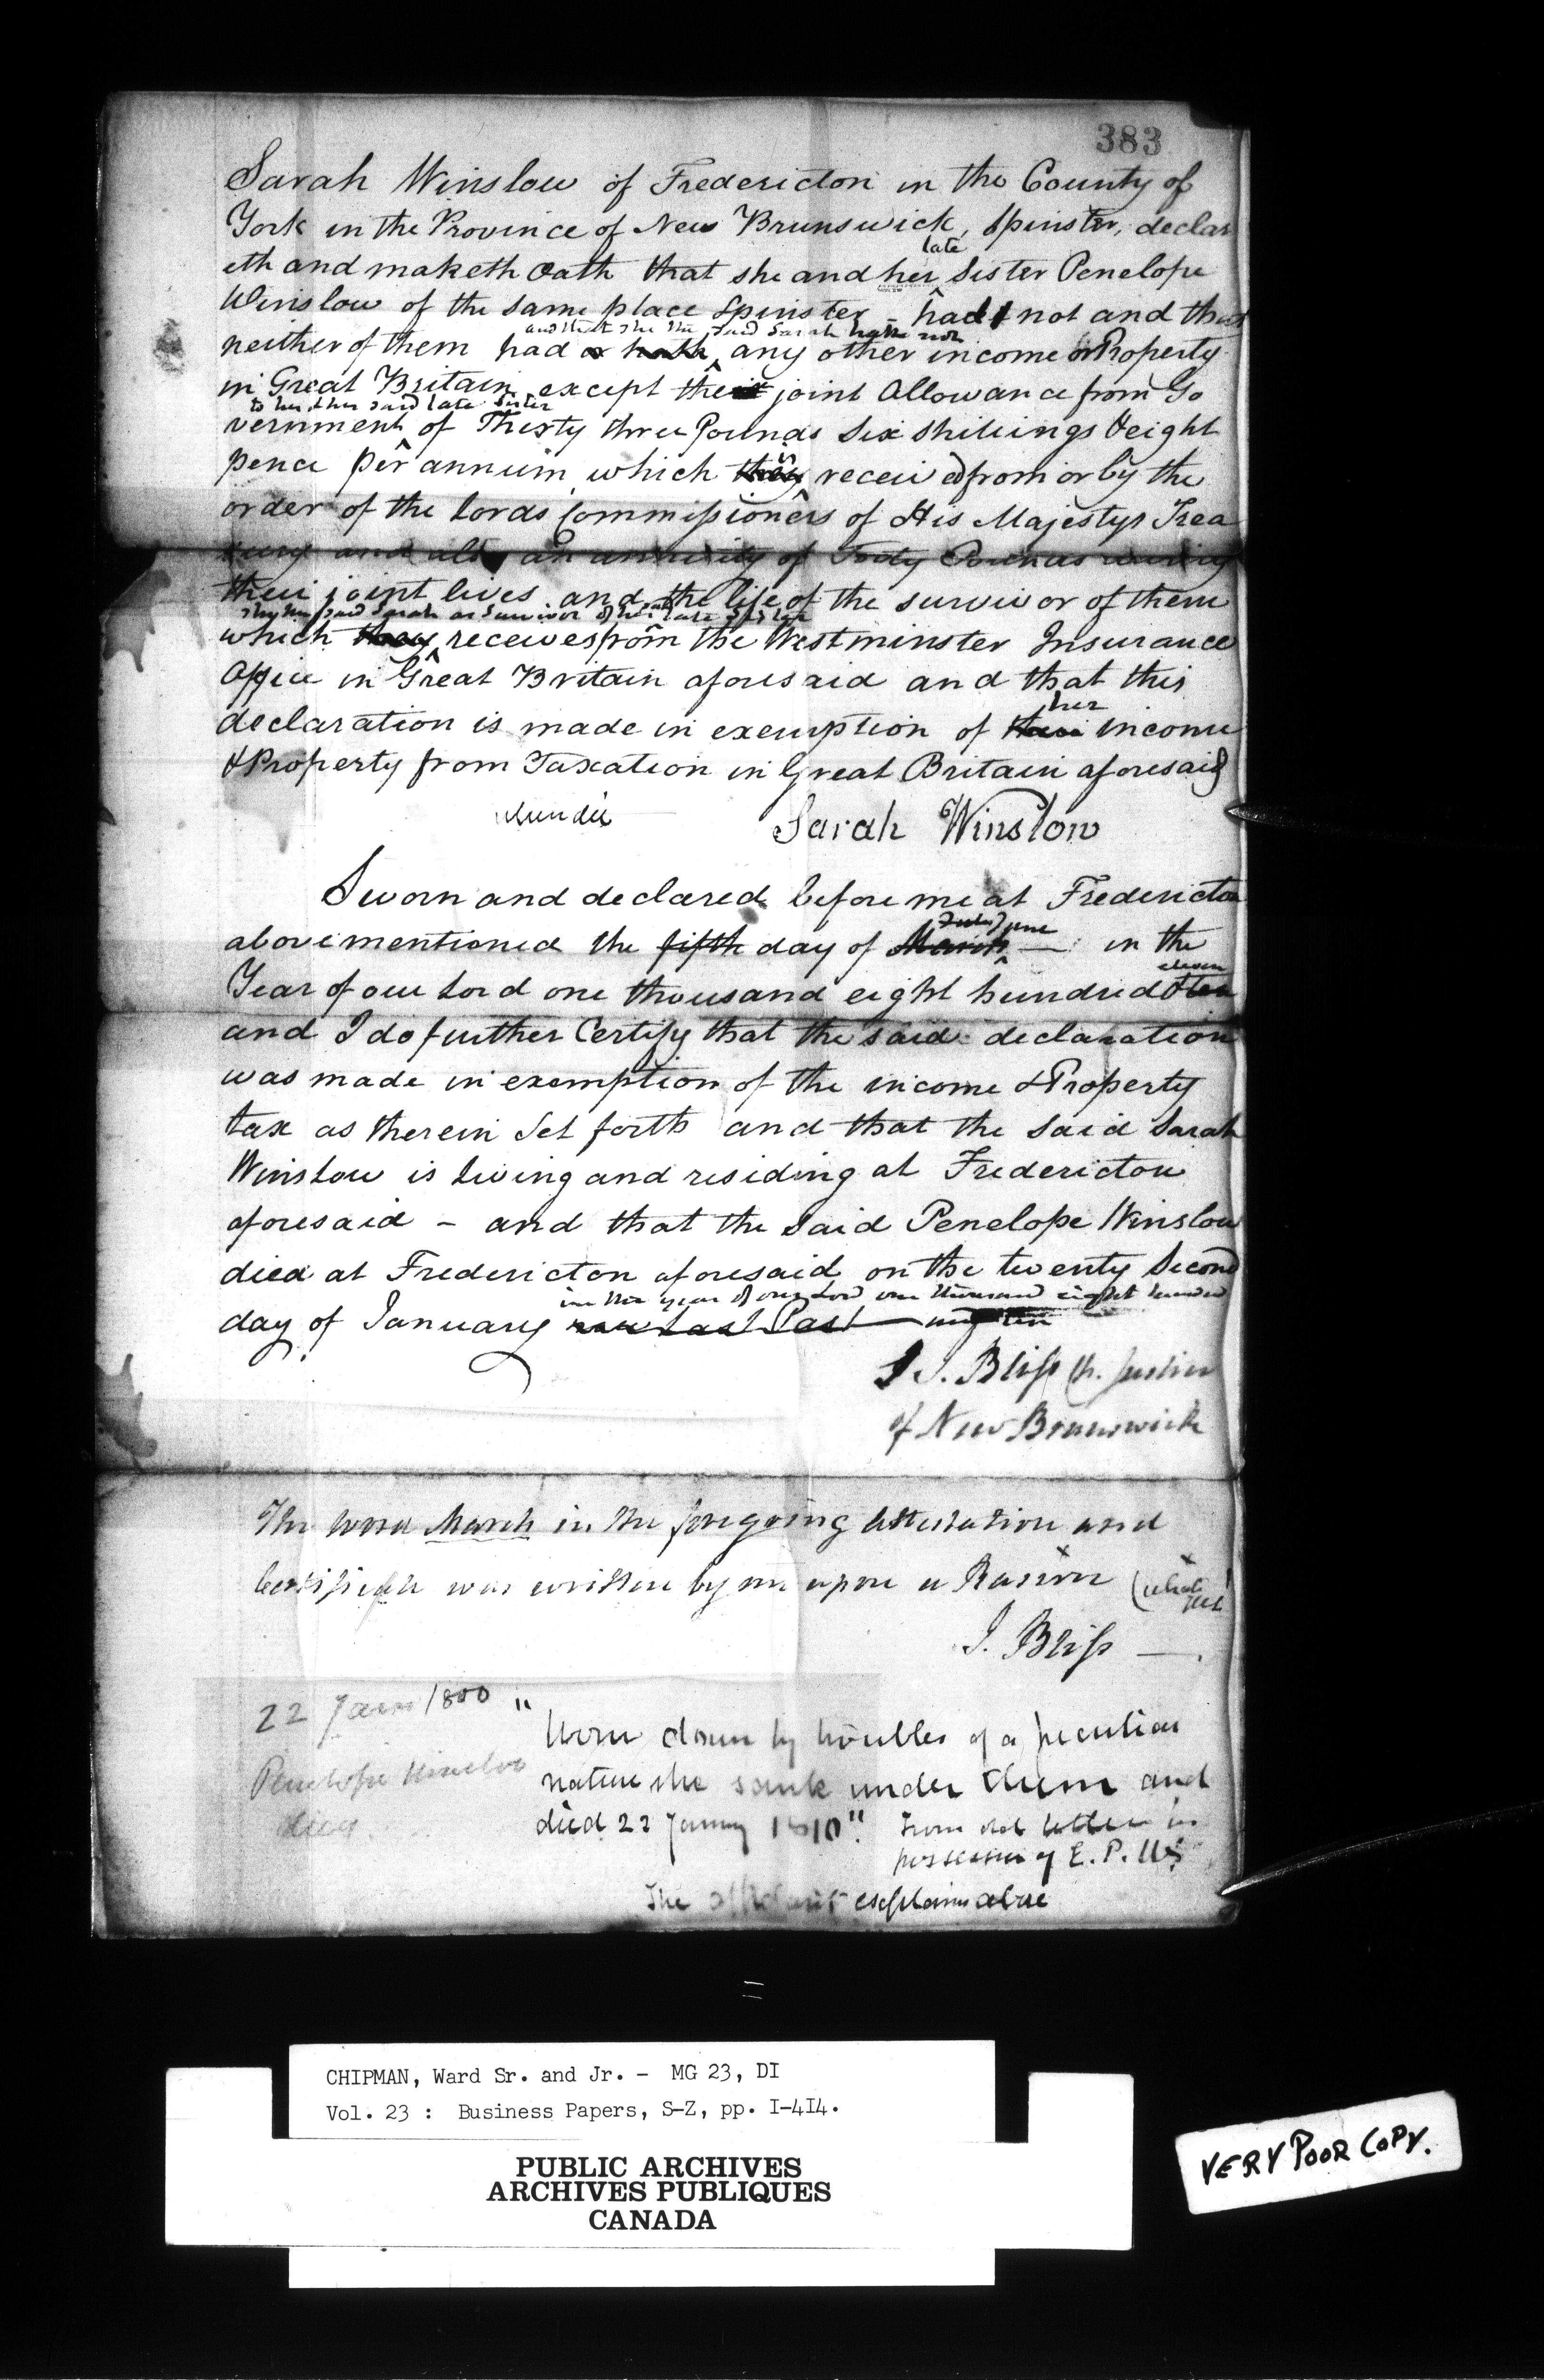 383
Sarah Winslow of Fredericton in the County of
York in the Province of New Brunswick, Spinster, declar
late
eth and maketh Oath that she and her Sister Penelope
Winslow of the same place Spinster - had not and that
and that she the said Sarah hath not
neither of them had or hath any other income or Property
in Great Britain except their joint Allowance from Go
to her & her said late Sister
vernment of Thirty three Pounds Six Shillings & eight
pence per annum, which they received from or by the
order of the Lords Commissioners of His Majestys Trea
sury and also an annuity of Forty Pounds during
their joint lives and the life of the survivor of them
she the said Sarah as Survivor of her said late Sister
which they receives from the Westminster Insurance
Office in Great Britain aforesaid and that this
her
declaration is made in exemption of their income
& Property from Taxation in Great Britain aforesaid
Sarah Winslow
Sworn and declared before me at Fredericton
June
abovementioned the fifth day of March — in the
eleven
Year of our Lord one thousand eight hundred & ten
and I do further Certify that the said declaration
was made in exemption of the income & Property
tax as therein Set forth and that the Said Sarah
Winslow is living and residing at Fredericton
aforesaid - and that the Said Penelope Winslow
died at Fredericton aforesaid on the twenty Second
in the year of our Lord one thousand eight hundred
day of January now last Past and ten
J. Bliss Ch. Justice
of New Brunswick
The word March in the foregoing Attestation and
Certificate was written by me upon a Rasure
J. Bliss —
22 Jan 1800
Penelope Winslow
died
"Worn down by troubles of a peculiar
nature she sank under them and
died 22 January 1810". From old letter in
possession of E. P. W
The affidavit explains above
CHIPMAN, Ward Sr. and Jr. - MG 23, DI
Vol. 23 : Business Papers, S-Z, pp. I-4I4.
PUBLIC ARCHIVES
ARCHIVES PUBLIQUES
CANADA
VERY POOR COPY.